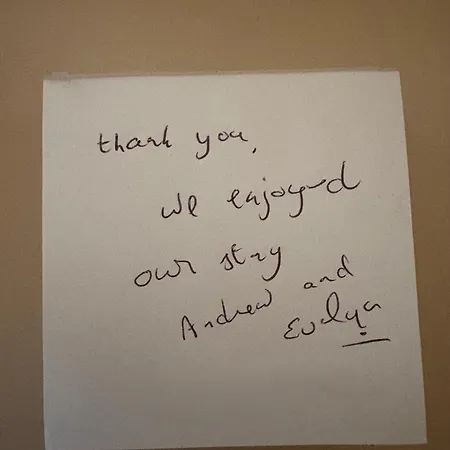 thank you,
we enjoyed
our stay
Andrew and
Evelyn